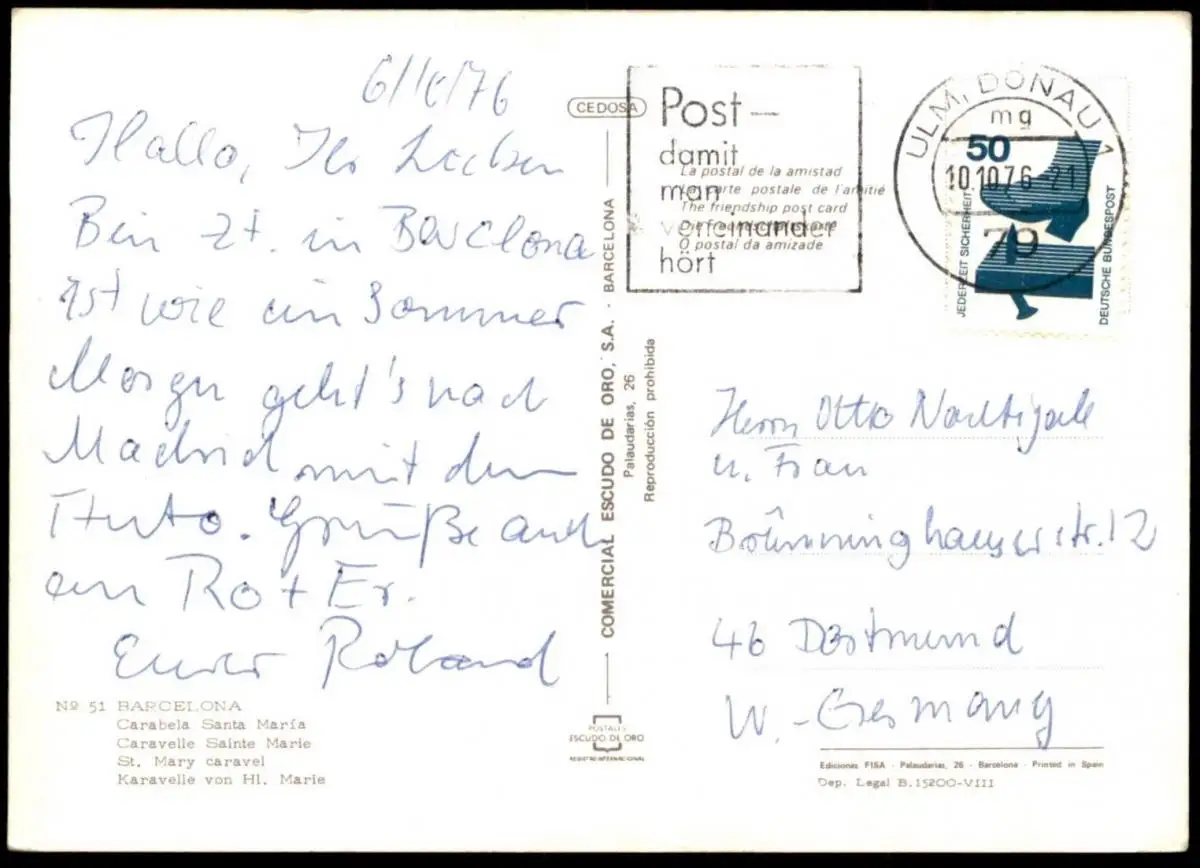 6/10/76
Hallo, Ihr Lieben
Bin zt. in Barcelona
Ist wie im Sommer
Morgen geht's nach
Madrid mit dem
Auto. Grüße auch
an Ro + Er.
Euer Roland
Nº 51 BARCELONA
Carabela Santa María
Caravelle Sainte Marie
St. Mary caravel
Karavelle von Hl. Marie
CEDOSA
COMERCIAL ESCUDO DE ORO, S.A. - BARCELONA
Palaudarias, 26
Reproducción prohibida
POSTALES
ESCUDO DE ORO
REGISTRO INTERNACIONAL
Post—
damit
man
voneinander
hört
La postal de la amistad
La carte postale de l'amitié
The friendship post card
Die Freundschaftskarte
O postal da amizade
ULM, DONAU 1
mg
10.10.76-21
50
70
JEDERZEIT SICHERHEIT
DEUTSCHE BUNDESPOST
Herrn Otto Nachtigale
u. Frau
Brünninghauserstr. 12
46 Dortmund
W.-Germany
Ediciones FISA - Palaudarias, 26 - Barcelona - Printed in Spain
Dep. Legal B. 15200-VIII